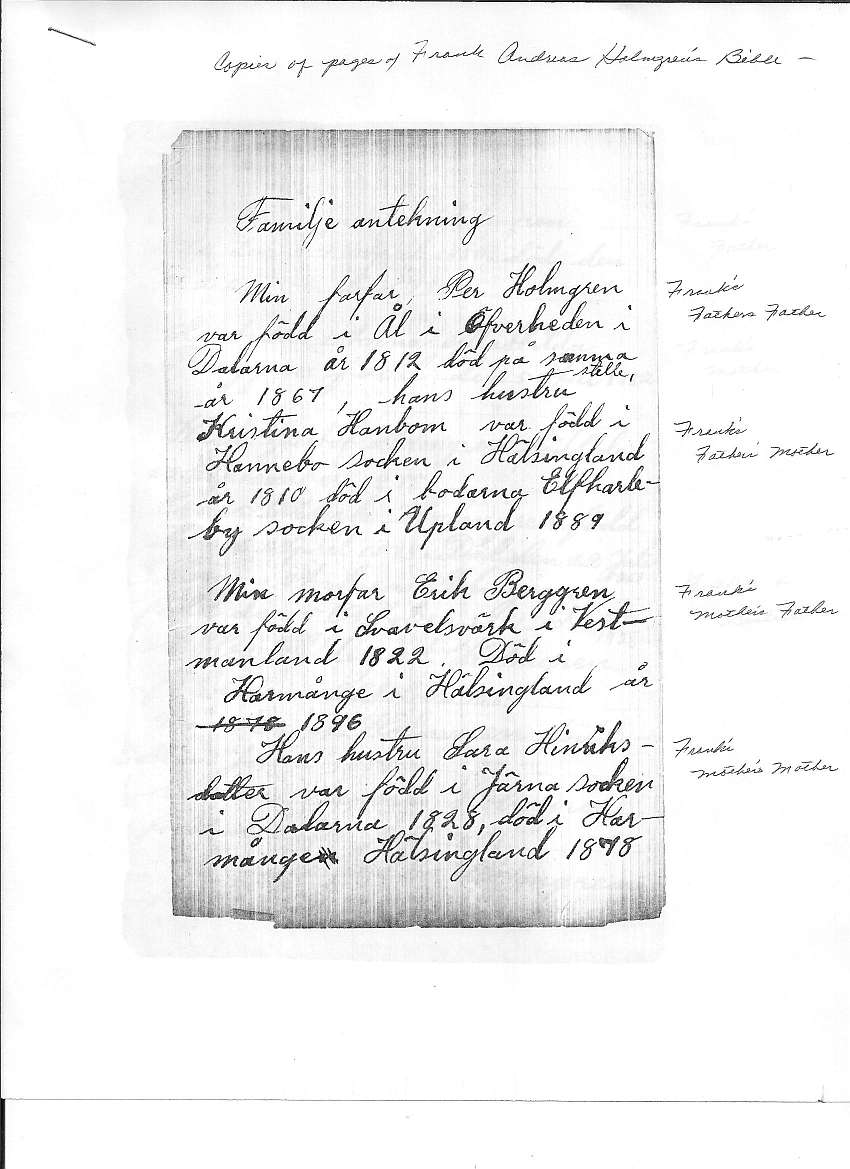 Copies of pages of Frank Andreas Holmgren's Bible —
Familje antekning
Min farfar, Per Holmgren
var född i Ål i Öfverheden i
Dalarna år 1812 död på samma
stelle,
år 1867, hans hustru
Kristina Hanbom var född i
Hannebo socken i Hälsingland
år 1810 död i bodarna Elfkarle-
by socken i Upland 1889
Frank's
Fathers Father
Frank's
Father's Mother
Min morfar Erik Berggren
var född i Svavelsvärk i Vest-
manland 1822. Död i
Harmånge i Hälsingland år
1878 1896
Hans hustru Sara Hinriks-
dotter var född i Järna socken
i Dalarna 1828, död i Har-
månge Hälsingland 1878
Frank's
Mother's Father
Frank's
Mother's Mother